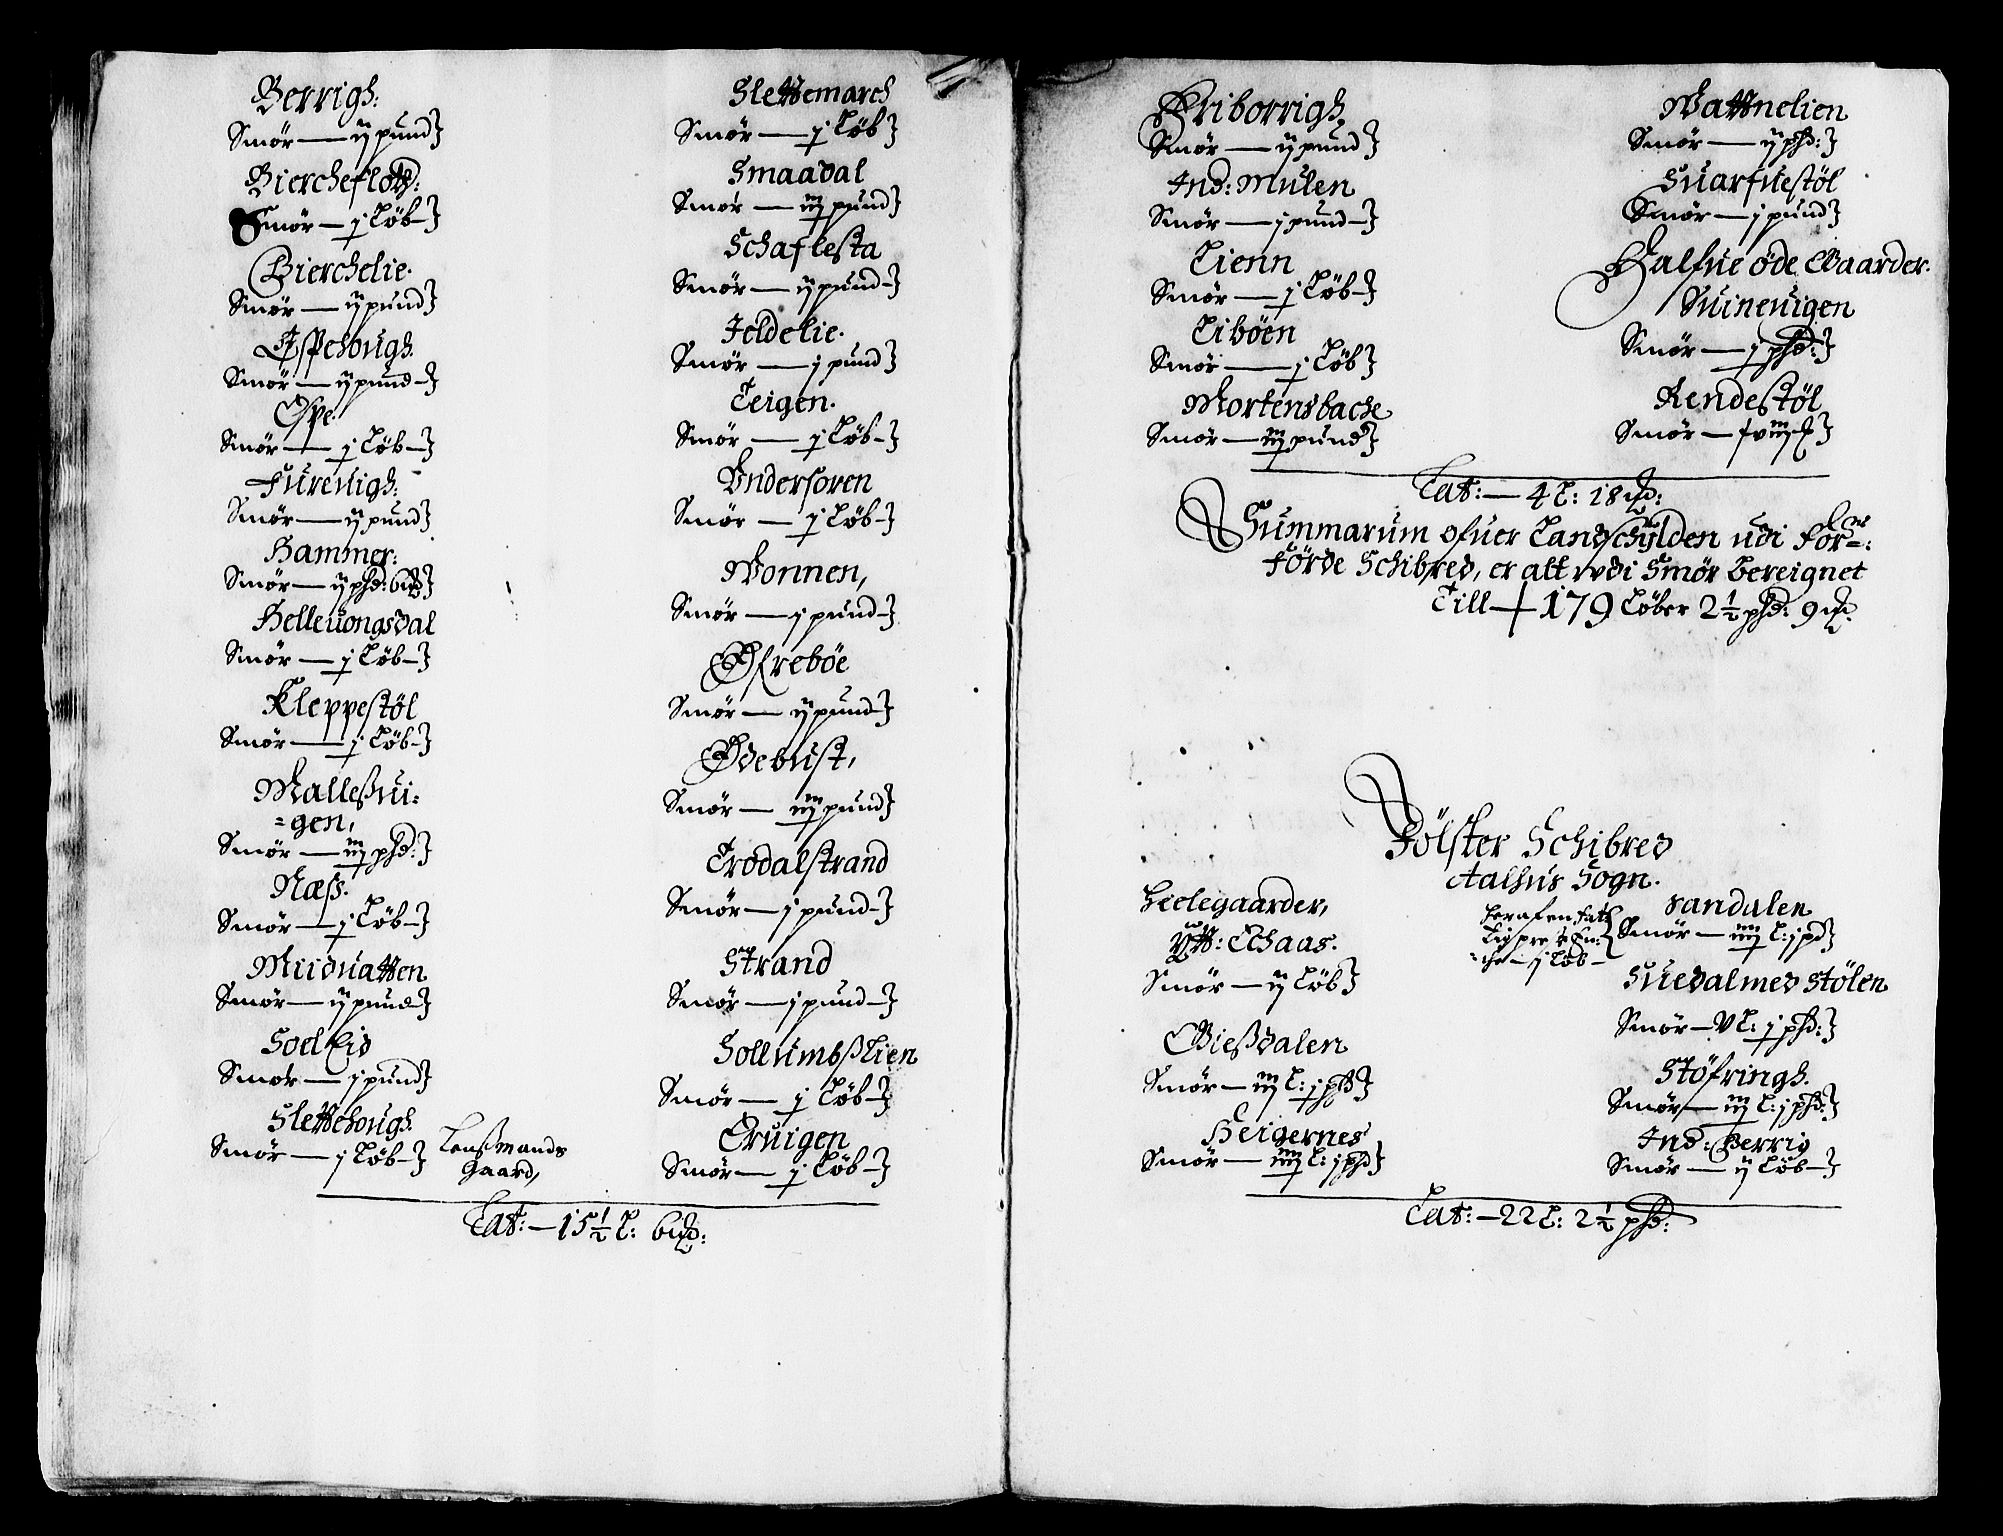 Berrigh:
Smør — ij pund}
Bierchefloth:
Smør — j Løb —}
Bierchelie.
Smør — ij pund}
Espehough.
Smør — ij pund —}
Espe.
Smør — j Løb —}
Furevigh:
Smør — ij pund}
Hammer:
Smør — ij phd: 6 }
Hellevongsdal
Smør — j Løb —}
Kleppestøl
Smør — j Løb —}
Malleßvi=
=gen,
Smør — iij phd:}
Næss.
Smør — j Løb —}
Miidvatten
Smør — ij pund}
Soeleid
Smør — j pund}
Slettehough.
Smør — j Løb —}
Lenßmands
Gaard,
Slettemarch
Smør — j Løb}
Smaadal
Smør — iij pund}
Schaflesta
Smør — ij pund —}
Jeldelie.
Smør — j pund}
Teigen.
Smør — j Løb —}
Undersoren
Smør — j Løb —}
Wonnen,
Smør — j pund —}
Øfrebøe
Smør — ij pund —}
Ødebust,
Smør — iij pund}
Trodalstrand
Smør — j pund —}
Strand
Smør — j pund —}
Sollumbßlien
Smør — j Løb —}
Ervigen
Smør — j Løb —}
Lat: — 15 1/2 L: 6 :
Kriborrigh,
Smør — ij pund}
Ind: Mulen
Smør — j pund —}
Lienn
Smør — j Løb —}
Liböen
Smør — j Løb}
Mortensbache
Smør — iij pund}
Wattnelien
Smør — ij phd:}
Suarfuestöl
Smør — j pund}
Halfue øde Gaarder.
Suinevigen
Smør — j phd:}
Rendestøl
Smør — }
Lat: — 4 L: 18 :
Summarum ofuer Landschylden udi For=:
Førde Schibred, er alt udi Smør bereignet
Till — 179 Løber 2 1/2 phd: 9
Jölster Schibred
Aalhus Sogn.
Heelegaarder,
Ytt: Ahaas.
Smør — ij Løb}
Gießdalen
Smør — iij L: j phd}
Heigernes
Smør — iiij L: j phd}
Sandalen
Smør — iiij L: j pd}
Suedal med Stølen
Smør — V L: j phd:}
Støfringh.
Smør — iij L: j phd:}
Ind: Berrig
Smør — ij Løb —}
Lat: — 22 L: 2 1/2 phd: